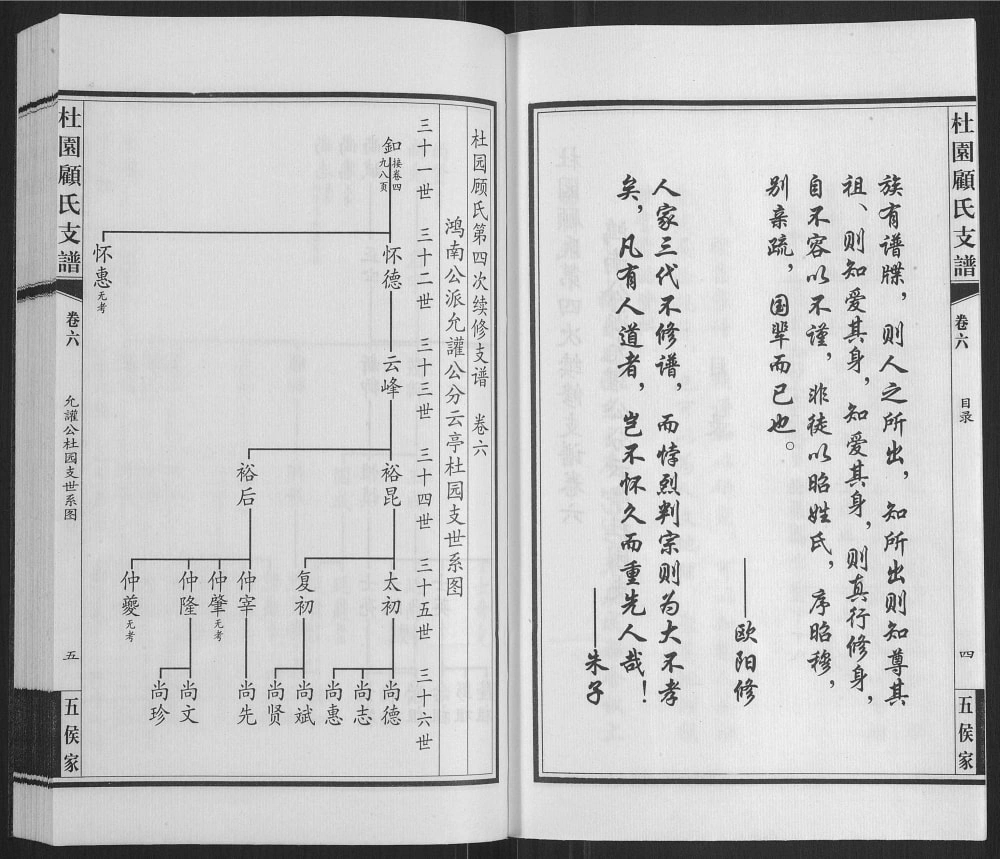 杜園顧氏支譜
卷六
目录
四
五侯家
族有谱牒，则人之所出，知所出则知尊其
祖、则知爱其身，知爱其身，则真行修身，
自不容以不谨，非徒以昭姓氏，序昭穆，
别亲疏，国辈而已也。
——欧阳修
人家三代不修谱，而悖烈判宗则为大不孝
矣，凡有人道者，岂不怀久而重先人哉！
——朱子
杜园顾氏第四次续修支谱 卷六
鸿南公派允讙公分云亭杜园支世系图
三十一世 三十二世 三十三世 三十四世 三十五世 三十六世
釦 接卷四九八页
怀德
怀惠 无考
云峰
裕昆
裕后
太初
复初
仲宰
仲肇 无考
仲隆
仲夔 无考
尚德
尚志
尚惠
尚斌
尚贤
尚先
尚文
尚珍
杜園顧氏支譜
卷六
允讙公杜园支世系图
五
五侯家